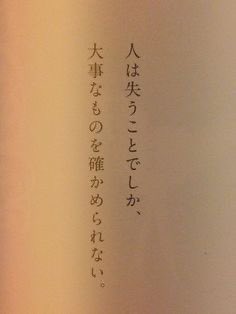 人は失うことでしか、
大事なものを確かめられない。